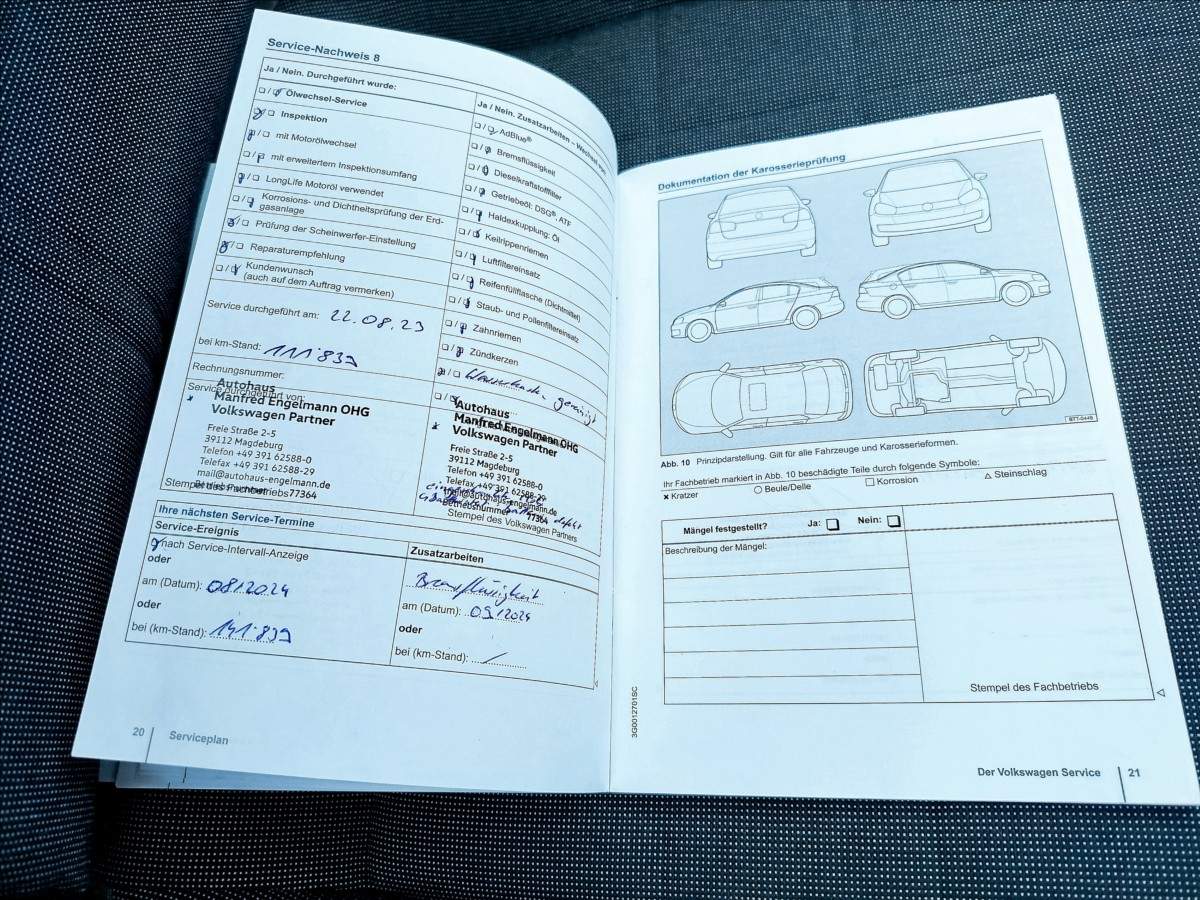 Service-Nachweis 8
Ja / Nein. Durchgeführt wurde:
Ölwechsel-Service
Inspektion
mit Motorölwechsel
mit erweitertem Inspektionsumfang
LongLife Motoröl verwendet
Korrosions- und Dichtheitsprüfung der Erd-
gasanlage
Prüfung der Scheinwerfer-Einstellung
Reparaturempfehlung
Kundenwunsch
(auch auf dem Auftrag vermerken)
Service durchgeführt am: 22.08.23
bei km-Stand: 111.839
Rechnungsnummer:
Service durchgeführt von:
Autohaus
Manfred Engelmann OHG
Volkswagen Partner
Freie Straße 2-5
39112 Magdeburg
Telefon +49 391 62588-0
Telefax +49 391 62588-29
mail@autohaus-engelmann.de
Betriebsnummer 77364
Stempel des Fachbetriebs
Ja / Nein. Zusatzarbeiten – Wechsel
AdBlue®
Bremsflüssigkeit
Dieselkraftstofffilter
Getriebeöl: DSG®, ATF
Haldexkupplung: Öl
Keilrippenriemen
Luftfiltereinsatz
Reifenfüllflasche (Dichtmittel)
Staub- und Pollenfiltereinsatz
Zahnriemen
Zündkerzen
Wasserkasten gereinigt
Autohaus
Manfred Engelmann OHG
Volkswagen Partner
Freie Straße 2-5
39112 Magdeburg
Telefon +49 391 62588-0
Telefax +49 391 62588-29
mail@autohaus-engelmann.de
Betriebsnummer 77364
Stempel des Volkswagen Partners
Ihre nächsten Service-Termine
Service-Ereignis
nach Service-Intervall-Anzeige
oder
am (Datum): 08/2024
oder
bei (km-Stand): 141.839
Zusatzarbeiten
Bremsflüssigkeit
am (Datum): 09/2024
oder
bei (km-Stand): /
20 Serviceplan
Dokumentation der Karosserieprüfung
BTT-0448
Abb. 10 Prinzipdarstellung. Gilt für alle Fahrzeuge und Karosserieformen.
Ihr Fachbetrieb markiert in Abb. 10 beschädigte Teile durch folgende Symbole:
Kratzer Beule/Delle Korrosion Steinschlag
Mängel festgestellt? Ja: Nein:
Beschreibung der Mängel:
Stempel des Fachbetriebs
3G0012701SC
Der Volkswagen Service 21